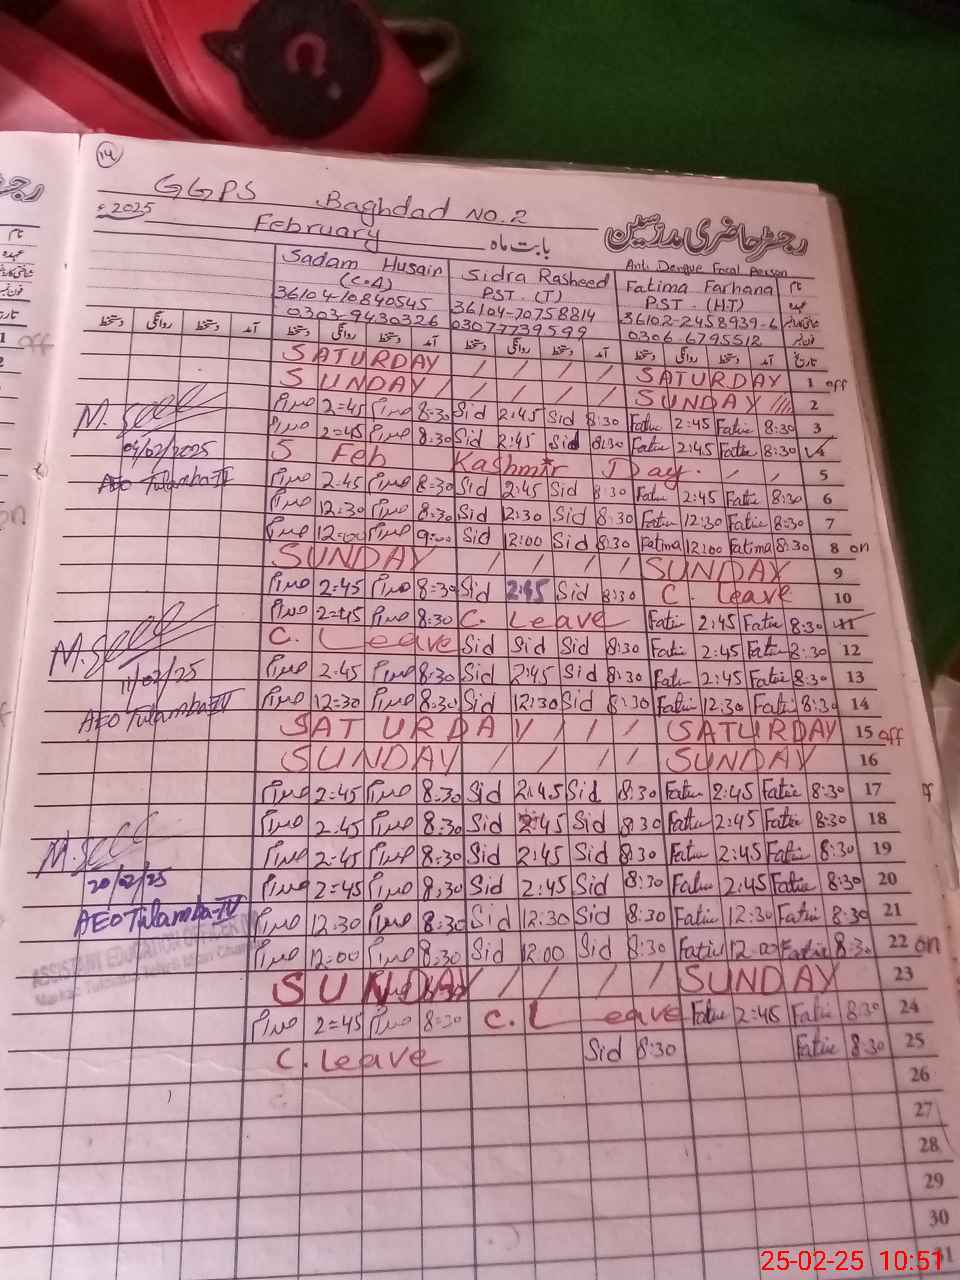 14
GGPS Baghdad No. 2
2025
February بابت ماہ رجسٹر حاضری مدرسین
Anti Dengue Focal Person
Sadam Husain Sidra Rasheed Fatima Farhana نام
(C.4) PST. (T) PST. (HT) عہدہ
36104-10840545 36104-70758814 36102-2458939-6
0303-9430326 03077739599 0306-6795512
دستخط روانگی دستخط آمد دستخط روانگی دستخط آمد دستخط روانگی دستخط آمد دستخط روانگی دستخط آمد تاریخ
SATURDAY / / / / SATURDAY 1 off
SUNDAY / / / / SUNDAY //// 2
2=45 8=30 Sid 2:45 Sid 8:30 Fatie 2:45 Fatie 8:30 3
2=45 8:30 Sid 2:45 Sid 8:30 Fatie 2:45 Fatie 8:30 4
5 Feb Kashmir Day. 5
2=45 8=30 Sid 2:45 Sid 8:30 Fatie 2:45 Fatie 8:30 6
12=30 8=30 Sid 12:30 Sid 8:30 Fatie 12:30 Fatie 8:30 7
12=00 9=00 Sid 12:00 Sid 8:30 Fatma 12:00 Fatima 8:30 8 on
SUNDAY / / / / SUNDAY 9
2=45 8=30 Sid 2:45 Sid 8:30 C. leave 10
2=45 8:30 C. Leave Fatie 2:45 Fatie 8:30 11
C. Leave Sid Sid Sid 8:30 Fatie 2:45 Fatie 8:30 12
2=45 8=30 Sid 2:45 Sid 8:30 Fatie 2:45 Fatie 8:30 13
12=30 8=30 Sid 12:30 Sid 8:30 Fatie 12:30 Fatie 8:30 14
SATURDAY / / / SATURDAY 15 off
SUNDAY / / / / SUNDAY 16
2=45 8=30 Sid 2:45 Sid 8:30 Fatie 2:45 Fatie 8:30 17
2.45 8:30 Sid 2:45 Sid 8:30 Fatie 2:45 Fatie 8:30 18
2=45 8=30 Sid 2:45 Sid 8:30 Fatie 2:45 Fatie 8:30 19
2=45 8:30 Sid 2:45 Sid 8:30 Fatie 2:45 Fatie 8:30 20
12.30 8:30 Sid 12:30 Sid 8:30 Fatie 12:30 Fatie 8:30 21
12=00 8:30 Sid 12:00 Sid 8:30 Fatie 12:00 Fatie 8:30 22 on
SUNDAY / / / / SUNDAY 23
2=45 8=30 C. Leave Fatie 2:45 Fatie 8:30 24
C. leave Sid 8:30 Fatie 8:30 25
26
27
28
29
30
31
04/02/2025
AEO Tulamba-IV
11/02/25
AEO Tulamba-IV
20/02/25
AEO Tulamba-IV
ASSISTANT EDUCATION OFFICER
1 off
on
25-02-25 10:51